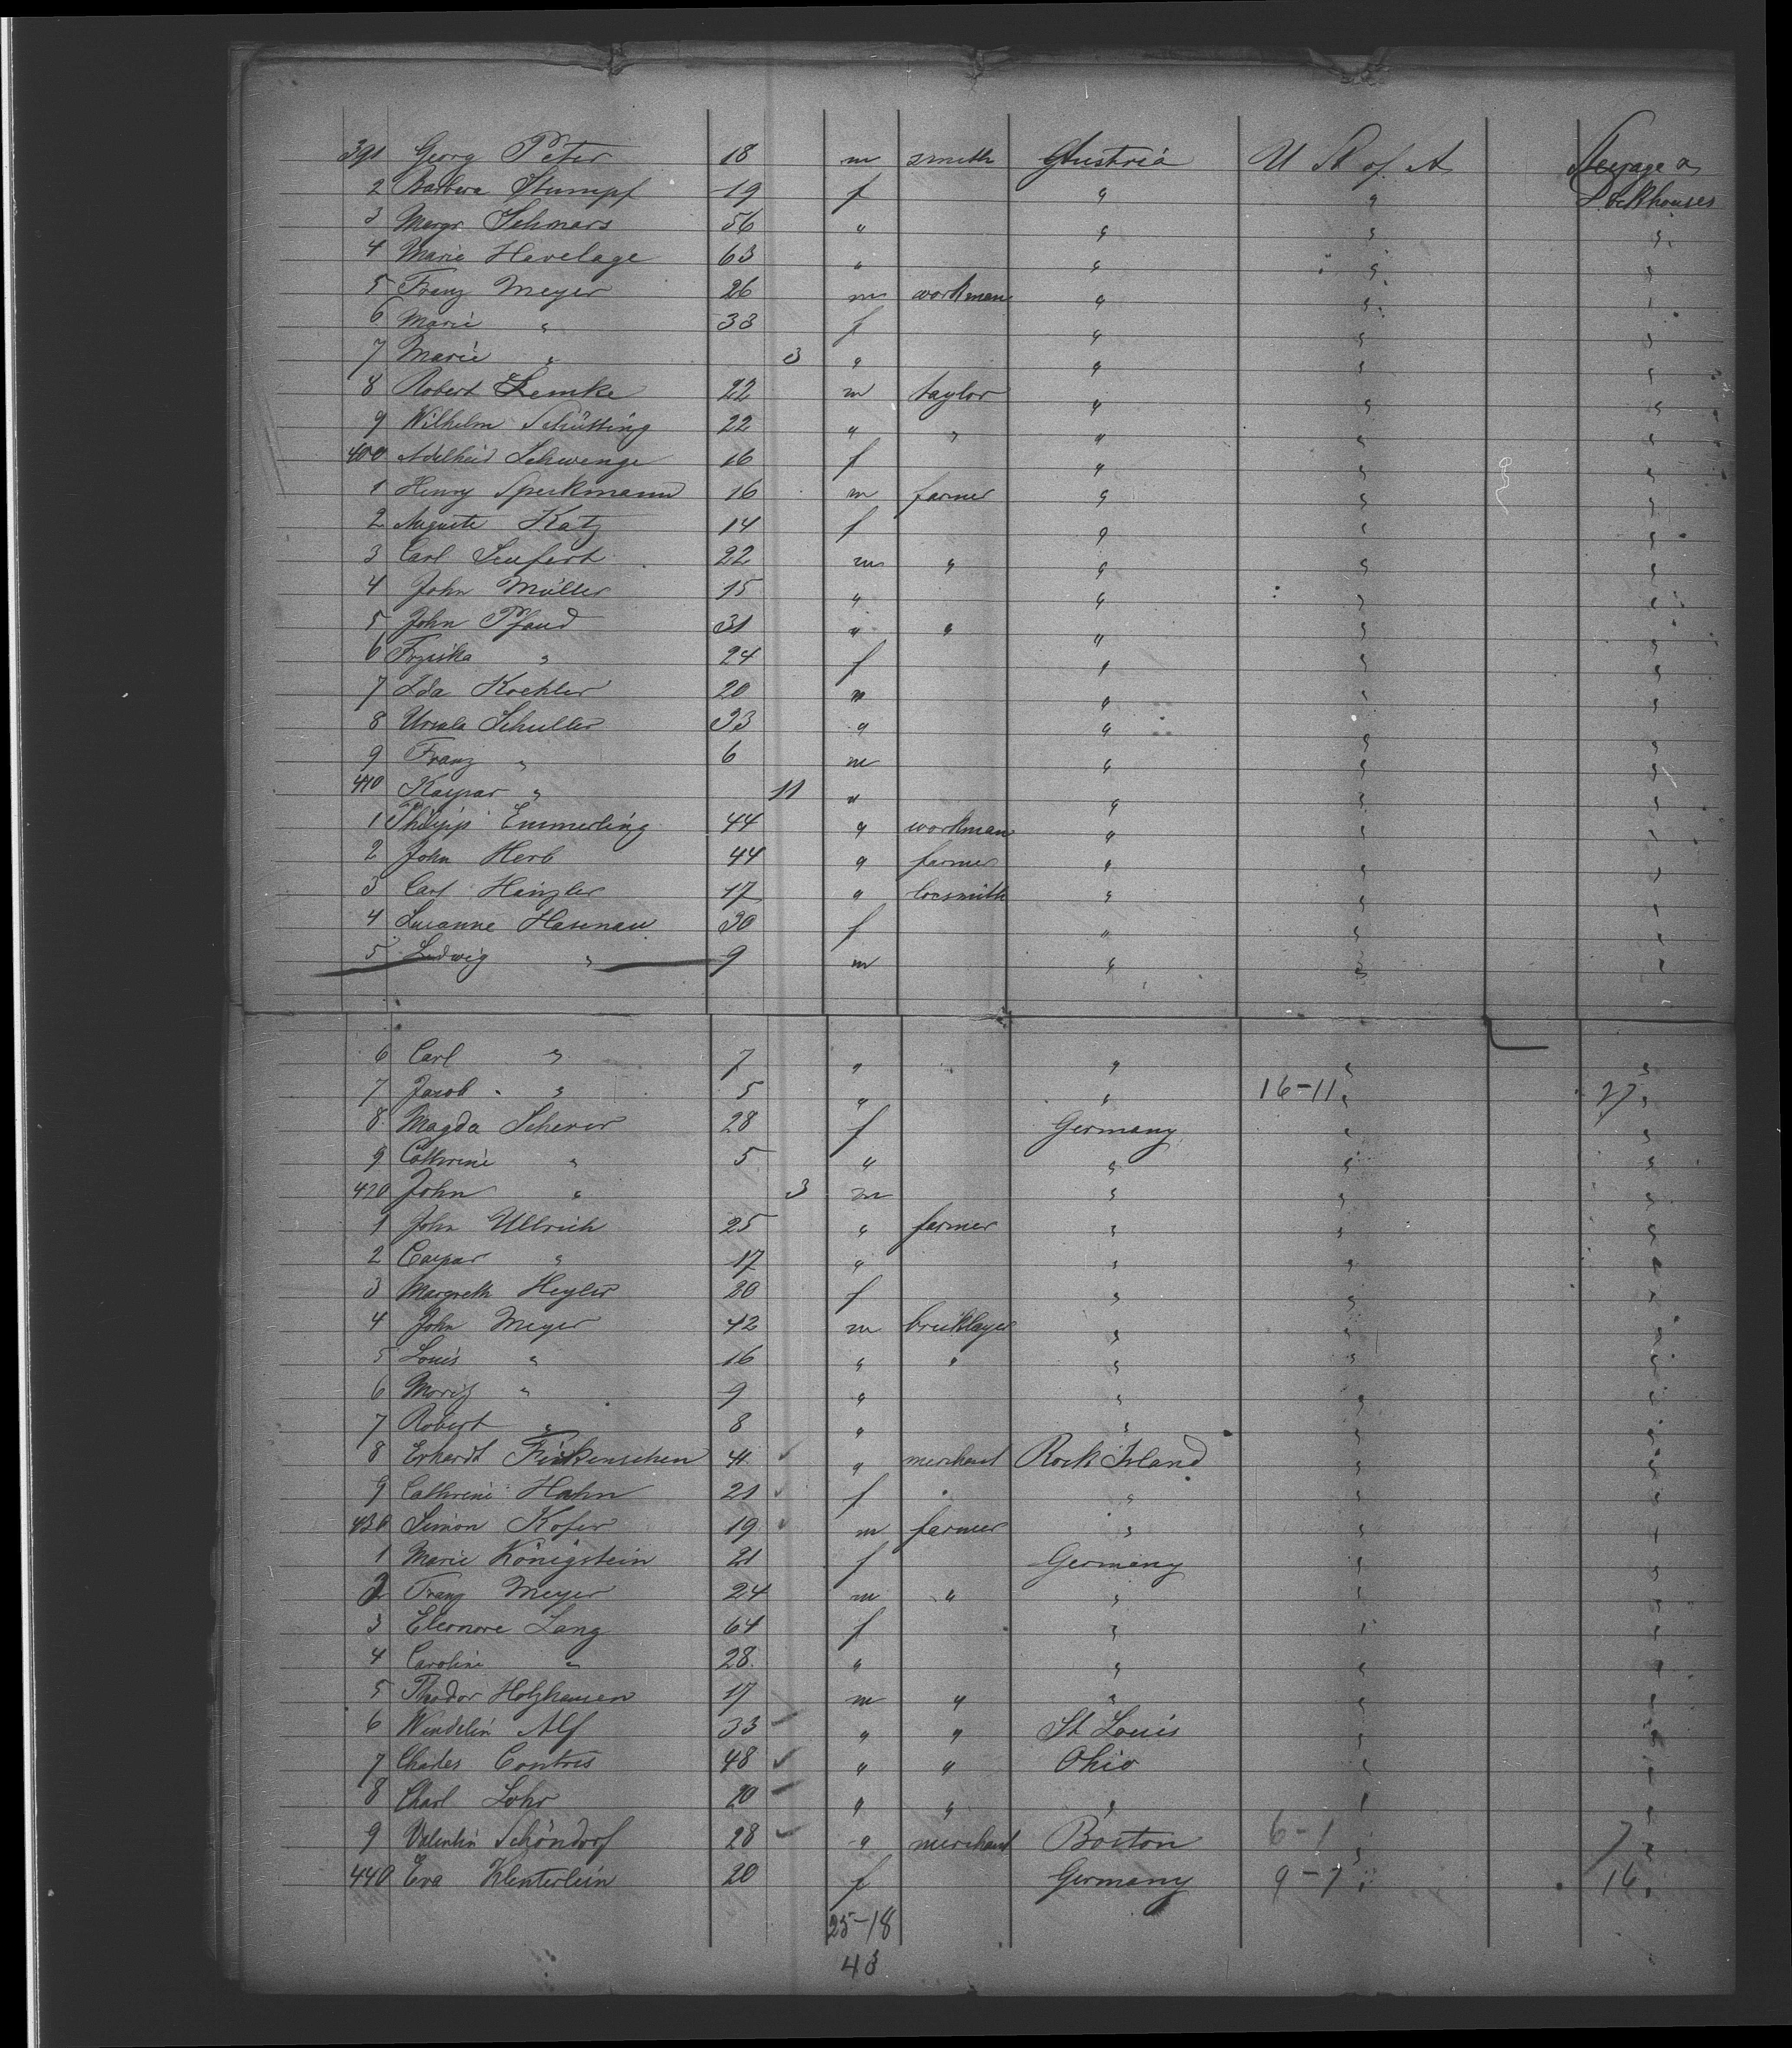 391 Georg Peter 18 m smith Austria U St of A Steerage &
2 Barbara Stumpf 19 f " " Deckhouses
3 Margr. Schmars 56 " " " "
4 Marie Havelage 63 " " " "
5 Franz Meyer 26 m workman " " "
6 Marie " 33 f " " "
7 Marie " 3 " " " "
8 Robert Lemke 22 m taylor " " "
9 Wilhelm Schütting 22 " " " " "
400 Adelheid Schwenge 16 f " " "
1 Henry Speckmann 16 m farmer " " "
2 Auguste Katz 14 f " " "
3 Carl Seufert 22 m " " " "
4 John Müller 15 " " " "
5 John Pfaud 31 " " " " "
6 Frziska " 24 f " " "
7 Ida Koehler 20 " " " "
8 Ursula Schuller 33 " " " "
9 Franz " 6 m " " "
410 Kaspar " 11 " " " "
1 Philipp Emmerling 44 " workman " " "
2 John Herb 44 " farmer " " "
3 Carl Hänzler 17 " locsmith " " "
4 Susanne Hasenau 30 f " " "
5 Ludwig " 9 m " " "
6 Carl " 7 " " " "
7 Jacob " 5 " " 16-11 " 27 "
8 Magda Scherer 28 f Germany " "
9 Cathrine " 5 " " " "
420 John " 3 m " " "
1 John Ullrich 25 " farmer " " "
2 Caspar " 17 " " " "
3 Margreth Heyler 20 f " " "
4 John Meyer 42 m bricklayer " " "
5 Louis " 16 " " " " "
6 Moritz " 9 " " " "
7 Robert " 8 " " " "
8 Erhardt Finkenschen 41 ✓ " merchant Rock Island " "
9 Cathrine Hahn 21 ✓ f " " "
430 Simon Kofer 19 ✓ m farmer " " "
1 Marie Königstein 21 f Germany " "
2 Franz Meyer 24 m " " " "
3 Eleonore Lang 64 f " " "
4 Caroline " 28 " " " "
5 Theodor Holzhausen 17 m " " " "
6 Wendelin Alf 33 ✓ " " St Louis " "
7 Charles Contris 48 ✓ " " Ohio " "
8 Charl Lohr 20 ✓ " " " " "
9 Valentin Schöndorf 28 ✓ " merchant Boston 6-1 " 7 "
440 Eva Klenterlein 20 f Germany 9-7 " 16 "
25-18
43